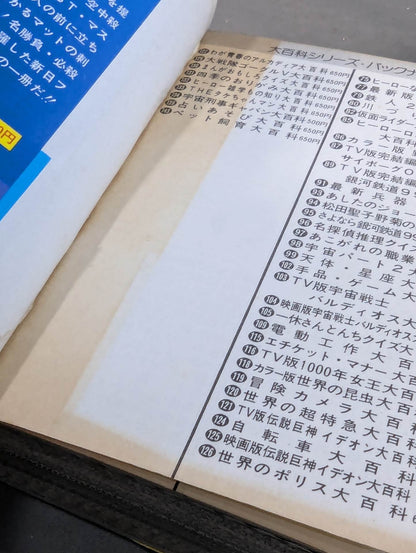 を提
空中殺
ST・マス
人の前に立ち
かるマットの刺
ノ名勝負・必殺
羅した新日フ
の一冊だ!!
0円
大百科シリーズ・バックナ
わが青春のアルカディア大百科650円
大戦隊ゴーグルV大百科650円
まんがおもしろクイズ大百科650円
四季のおりがみ大百科650円
ヒーロー雑学もの知り大百科650円
THEタケちゃんマン大百科650円
宇宙刑事ギャバン大百科650円
占いあそび大百科650円
ペット飼育大百科650円
ヒーロー
最新版
鉄人
川
仮面ライダー
ヒーロー
大百科
カラー版
TV版完結編
サイボーグ0
TV版完結編
銀河鉄道9
91 最新兵器
93 あしたのジョー
94 松田聖子野菊の
95 さよなら銀河鉄道99
96 名探偵推理クイズ
97 あこがれの職業
98 宇宙パート2
99 天体・星座大
102 手品・ゲーム大
103 TV版宇宙戦士
バルディオス
104 映画版宇宙戦士バルディオス
105 一休さんとんちクイズ大
109 電動工作大百
115 エチケット・マナー大百
116 TV版1000年女王大百
118 カラー版世界の昆虫大百
119 冒険カメラ大百科
120 世界の超特急大百科
121 TV版伝説巨神イデオン大百
124 自転車大百科
125 映画版伝説巨神イデオン大百科
126 世界のポリス大百科6